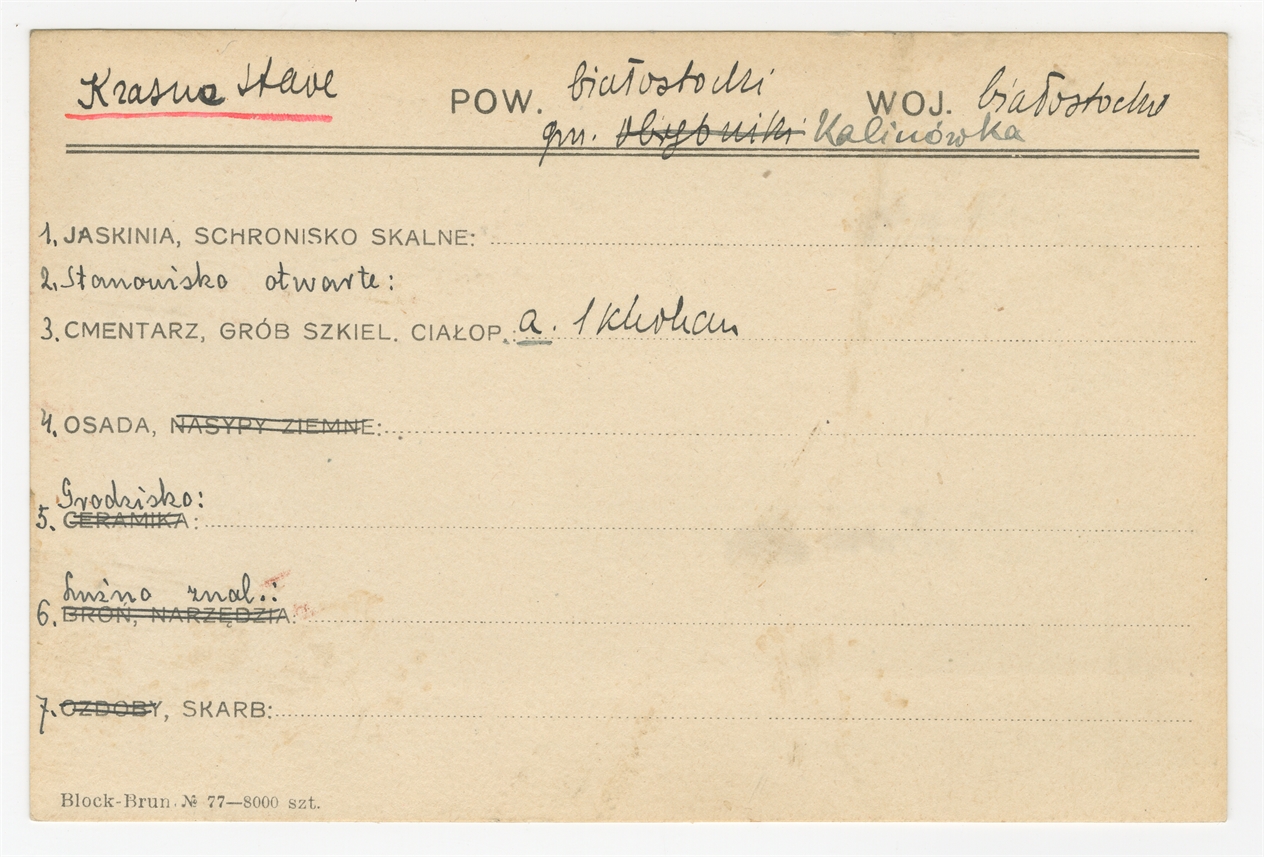 Krasne Stare POW. białostocki WOJ. białostockie
gm. Obrębniki Kalinówka
1. JASKINIA, SCHRONISKO SKALNE:
2. Stanowisko otwarte:
3. CMENTARZ, GRÓB SZKIEL. CIAŁOP.: a. 1 khohan
4. OSADA, NASYPY ZIEMNE:
Grodzisko:
5. CERAMIKA:
Luźno znal.:
6. BROŃ, NARZĘDZIA:
7. OZDOBY, SKARB:
Block-Brun. № 77—8000 szt.